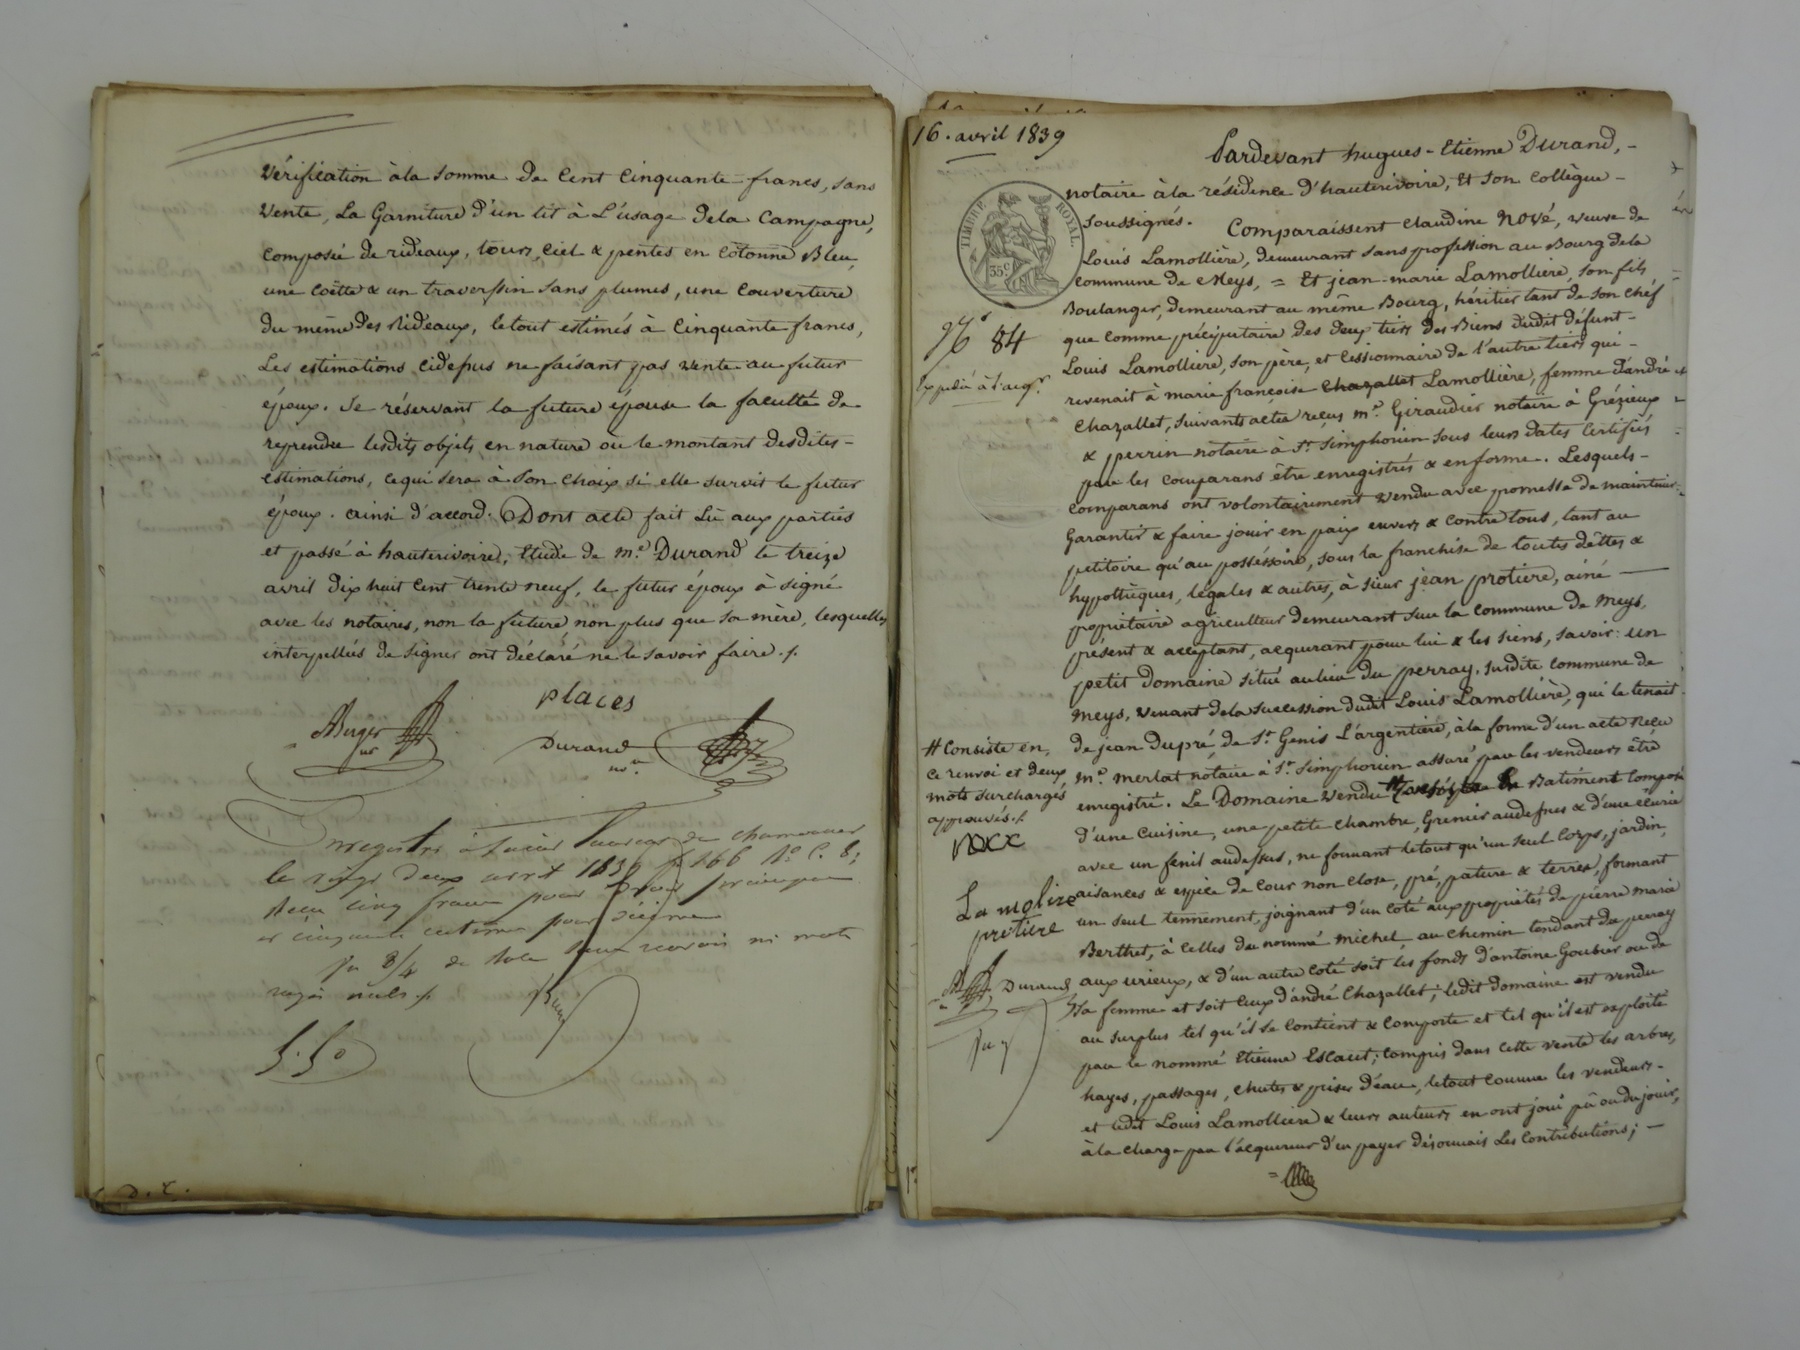 vérification à la somme de Cent Cinquante francs, sans
vente, La Garniture d'un lit à L'usage de la Campagne,
composée de rideaux, tours, ciel & pentes en Cotonne Bleu,
une Coëtte & un traversin sans plumes, une couverture
du même des Rideaux, le tout estimés à Cinquante francs,
Les estimations cidessus ne faisant pas vente au futur
époux. Se réservant la future épouse la faculté de
reprendre lesdits objets en nature ou le montant desdites-
estimations, ce qui sera à son choix si elle survit le futur
époux. ainsi d'accord. Dont acte fait Lu aux parties
et passé à hauterivoire, Etude de Me. Durand le treize
avril dix huit Cent trente neuf, le futur époux à signé
avec les notaires, non la future non plus que sa mère, lesquelles
interpellées de signer ont déclaré ne le savoir faire ./.
places
Berger nre
Durand nre
Enregistré à
le vingt deux avril 1839 fo 166 Ro C. 8;
Reçu cinq francs pour
et cinquante centimes pour décime
renvoi ni mots
rayés nuls ./.
D. C.
16. avril 1839
Pardevant hugues-Etienne Durand, -
notaire à la résidence d'hauterivoire, Et son Collègue -
Soussignés. Comparaissent Claudine Nové, veuve de
TIMBRE ROYAL. 35c
Louis Lamollière, demeurant sans profession au Bourg de la
Commune de Meys, = Et jean-marie Lamollière, son fils,
Boulanger, demeurant au même Bourg, héritier tant de son chef
No 84
que comme préciputaire des deux tiers des Biens dudit défunt -
Louis Lamollière, son père, et Cessionnaire de l'autre tiers qui -
Expédié à l'acqr.
revenait à marie françoise Chazallet Lamollière, femme d'andré
Chazallet, suivants actes reçus me. Giraudier notaire à Grézieux
& perrin notaire à St. Simphorien sous leurs dates Certifiés
par les Comparans être enregistrés & en forme. Lesquels -
Comparans ont volontairement vendu avec promesse de maintenir
Garantir & faire jouir en paix envers & contre tous, tant au
petitoire qu'au posséssoire, sous la franchise de toutes dettes &
hypothèques, légales & autres, à sieur jean protière, ainé —
propriétaire agriculteur demeurant sur la Commune de Meys,
présent & acceptant, acquérant pour lui & les siens, savoir: un
petit domaine situé au lieu du perray, susdite Commune de
Meys, venant de la succession dudit Louis Lamollière, qui le tenait
de jean Dupré, de St. Genis L'argentière, à la forme d'un acte Reçu
me. merlat notaire à St. Simphorien assuré par les vendeurs être
enregistré. Le Domaine vendu # Batiment Composé
# Consiste en,
ce renvoi et deux
mots surchargés
approuvés ./.
d'une Cuisine, une petite chambre, Grenier audessus & d'une écurie
avec un fenil audessus, ne formant le tout qu'un seul Corps, jardin,
aisances & espèce de Cour non Close, pré, pature & terres, formant
un seul tennement, joignant d'un coté aux propriétés de pierre marie
La molire
protière
Durand
Berthet, à Celles du nommé Michel, au chemin tendant du perray
aux urieux, & d'un autre coté soit les fonds d'antoine Goubier ou de
sa femme et soit Ceux d'andré Chazallet; ledit domaine est vendu
au surplus tel qu'il se Contient & Comporte et tel qu'il est exploité
par le nommé Etienne Escaut; Compris dans Cette vente les arbres,
hayes, passages, Chutes & prises d'eau, le tout Comme les vendeurs -
et ledit Louis Lamollière & leurs auteurs en ont joui pû ou du jouir,
à la charge par l'acquéreur d'en payer désormais les Contributions; —